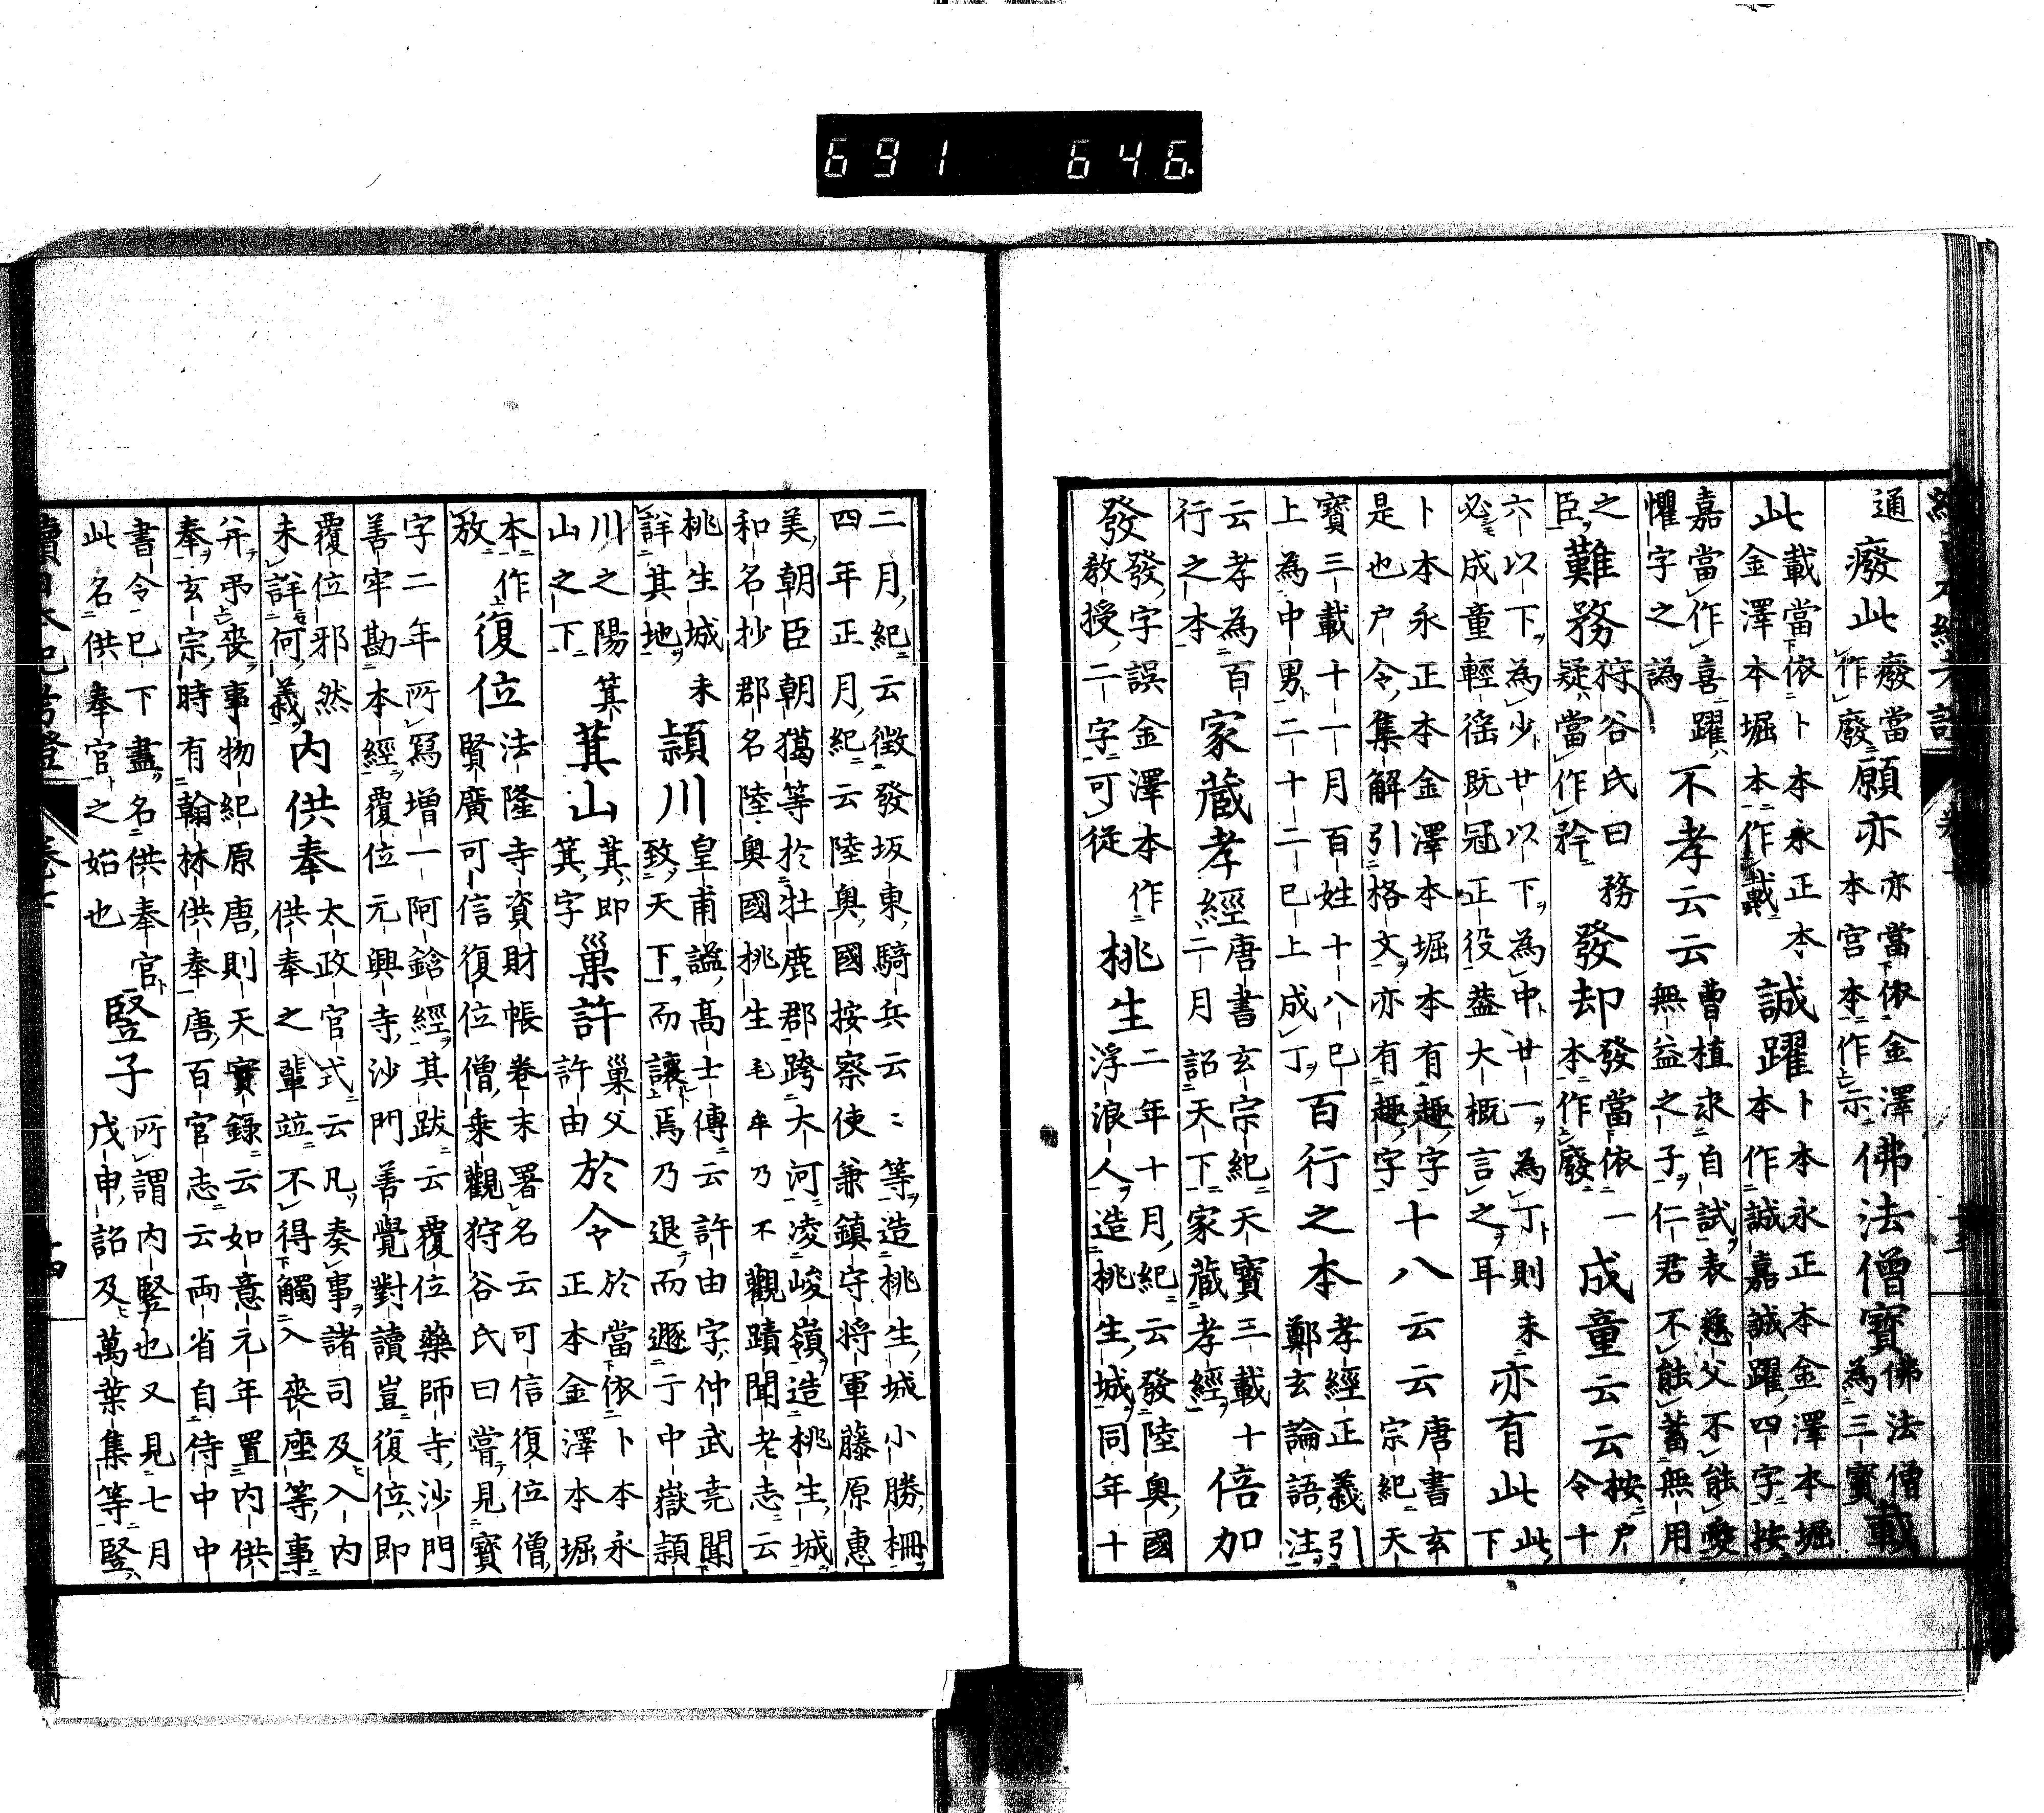 通廢此廢當作廢願亦亦當依金澤本宮本作示佛法僧寶佛法僧為三寶載
此載當依卜本永正本金澤本堀本作戴誠躍卜本永正本金澤本堀本作誠嘉誠躍四字按
嘉當作喜躍懼字之譌不孝云云曹植求自試表慈父不能愛無益之子仁君不能蓄無用
之臣難務狩谷氏曰務疑當作矜發却發當依一本作廢成童云云按戶令十
六以下為少廿以下為中廿一為丁則未必成童輕徭既冠正役蓋大概言之耳亦有此此下
卜本永正本金澤本堀本有趣字是也戶令集解引格文亦有趣字十八云云唐書玄宗紀天
寶三載十一月百姓十八已上為中男二十二已上成丁百行之本孝經正義引鄭玄論語注
云孝為百行之本家藏孝經唐書玄宗紀天寶三載十二月詔天下家藏孝經倍加
發發字誤金澤本作教授二字可從桃生二年十月紀云發陸奧國浮浪人造桃生城同年十
二月紀云徵發坂東騎兵云々等造桃生城小勝柵四年正月紀云陸奧國按察使兼鎮守將軍藤原惠
美朝臣朝獦等於牡鹿郡跨大河凌峻嶺造桃生城和名抄郡名陸奧國桃生毛牟乃不觀蹟聞老志云
桃生城未詳其地潁川皇甫謐高士傳云許由字仲武堯聞致天下而讓焉乃退而遯于中嶽潁
川之陽箕山之下箕山箕即箕字巢許巢父許由於令於當依卜本永正本金澤本堀
本作放復位法隆寺資財帳卷末署名云可信復位僧賢廣可信復位僧乘觀狩谷氏曰嘗見寶
字二年所寫增一阿鋡經其跋云覆位藥師寺沙門善牢勘本經覆位元興寺沙門善覺對讀豈復位即
覆位邪然未詳何義內供奉太政官式云凡奏事諸司及入內供奉之輩竝不得觸入喪座等事
并弔喪事物紀原唐則天實錄云如意元年置內供奉玄宗時有翰林供奉唐百官志云兩省自侍中中
書令已下盡名供奉官此名供奉官之始也豎子所謂內豎也又見七月戊申詔及萬葉集等豎